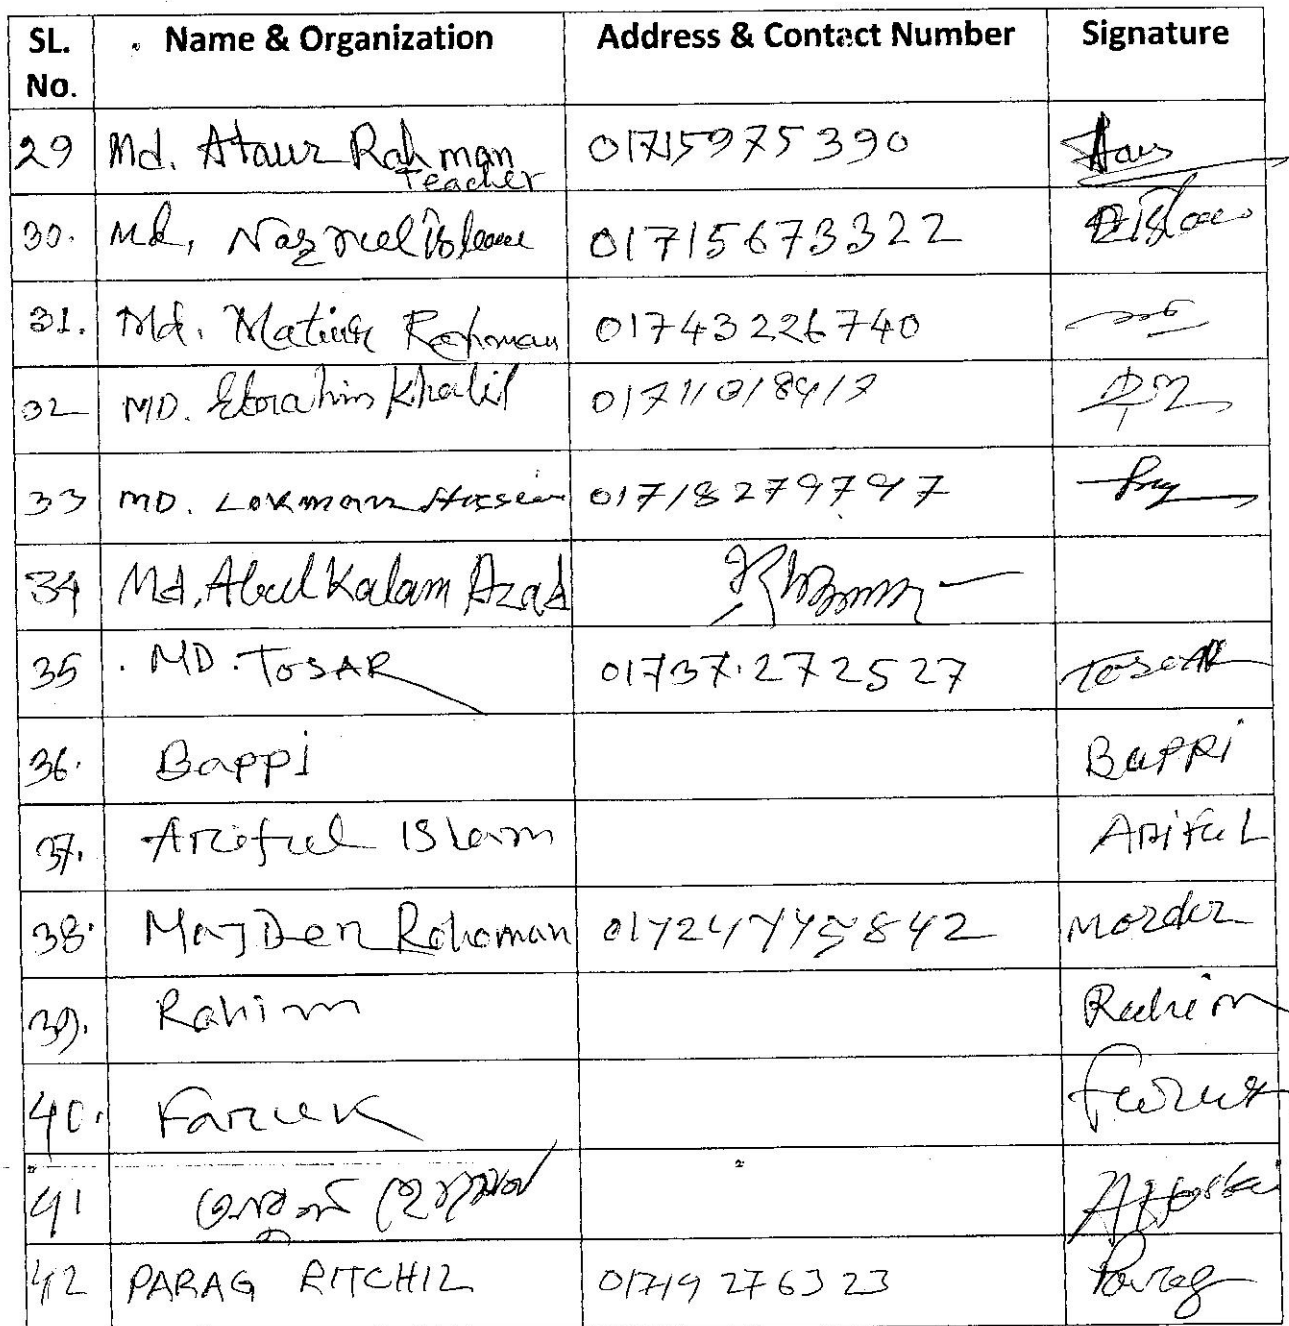 SL. No. Name & Organization Address & Contact Number Signature
29 Md. Ataur Rahman Teacher 01715975390
30. Md, Nazmul Islam 01715673322
31. Md. Matiur Rahman 01743226740
32 MD. Ebrahim Khalil
33 MD. Lokman Hossein 01718279797
34 Md. Abul Kalam Azad
35 MD. TOSAR 01737.272527 TOSAR
36. Bappi Bappi
37. Ariful Islam Ariful
38. Rohoman
39. Rahim Rahim
40. Faruk Faruk
41
42 PARAG RITCHIL 01719276323 Parag